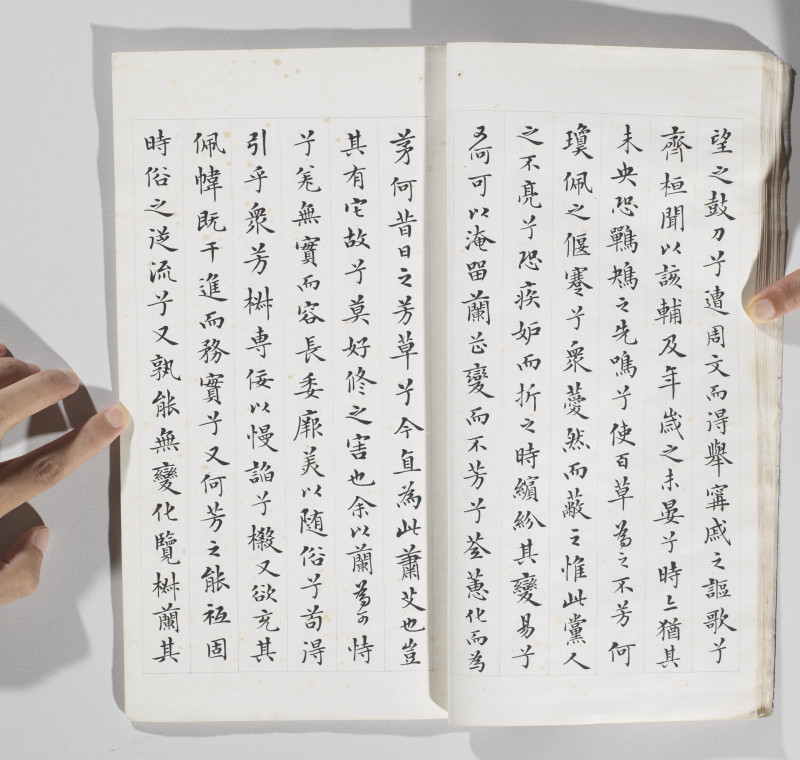 望之鼓刀兮遭周文而得舉甯戚之謳歌兮
齊桓聞以該輔及年歲之未晏兮時亦猶其
未央恐鷤鴂之先鳴兮使百草為之不芳何
瓊佩之偃蹇兮眾薆然而蔽之惟此黨人
之不亮兮恐疾妒而折之時繽紛其變易兮
又何可以淹留蘭芷變而不芳兮荃蕙化而為
茅何昔日之芳草兮今直為此蕭艾也豈
其有它故兮莫好修之害也余以蘭為可恃
兮羌無實而容長委厥美以随俗兮苟得
引乎眾芳椒專佞以慢諂兮樧又欲充其
佩幃既干進而務實兮又何芳之能祗固
時俗之逆流兮又孰能無變化覽椒蘭其